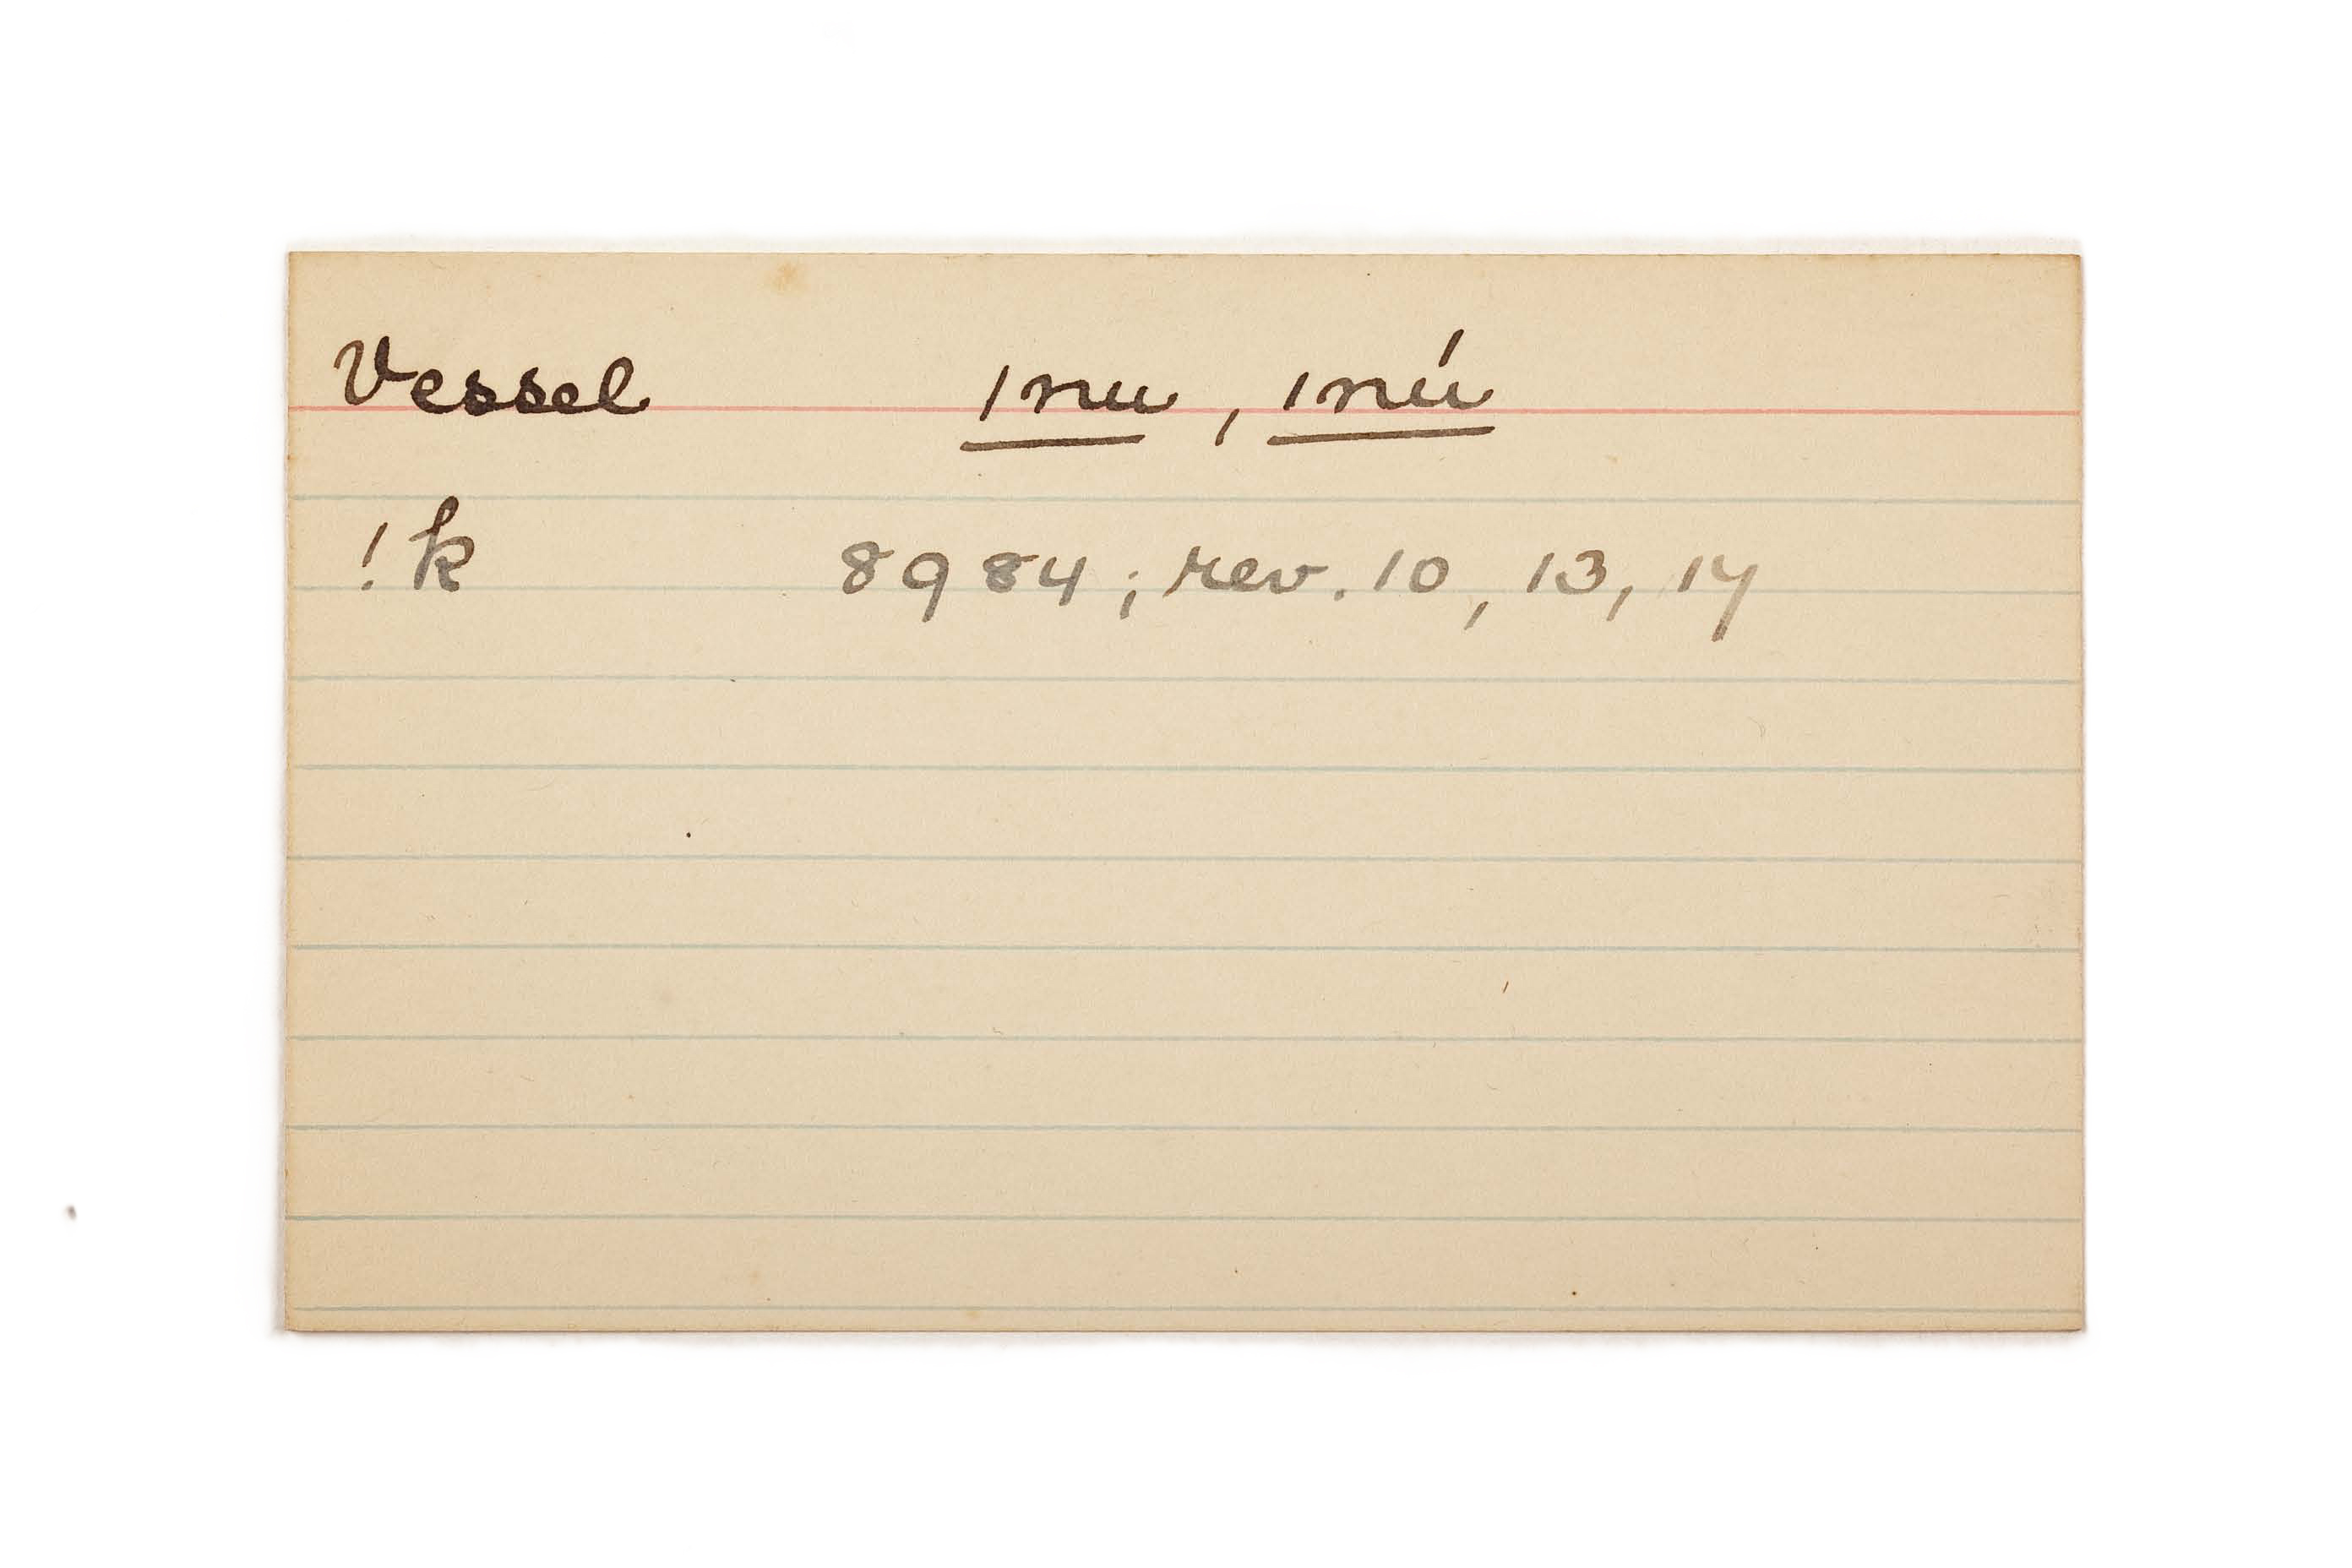 Vessel ǀnu, ǀnú
!k 8984; rev. 10, 13, 14